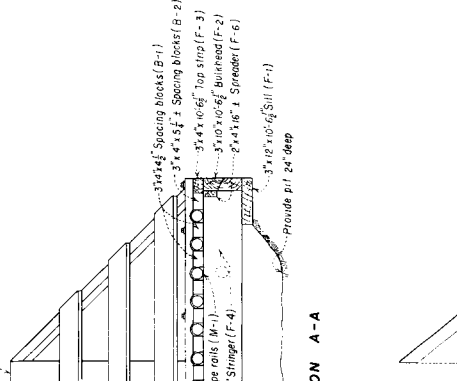 3"x4"x4½" Spacing blocks (B-1)
3"x4"x5¼" ± Spacing blocks (B-2)
3"x4"x10'-6½" Top strip (F-3)
3"x10"x10'-6½" Bulkhead (F-2)
2"x4"x16" ± Spreader (F-6)
3"x12"x10'-6½" Sill (F-1)
Provide pit 24" deep
pe rails (M-1)
Stringer (F-4)
ON A-A